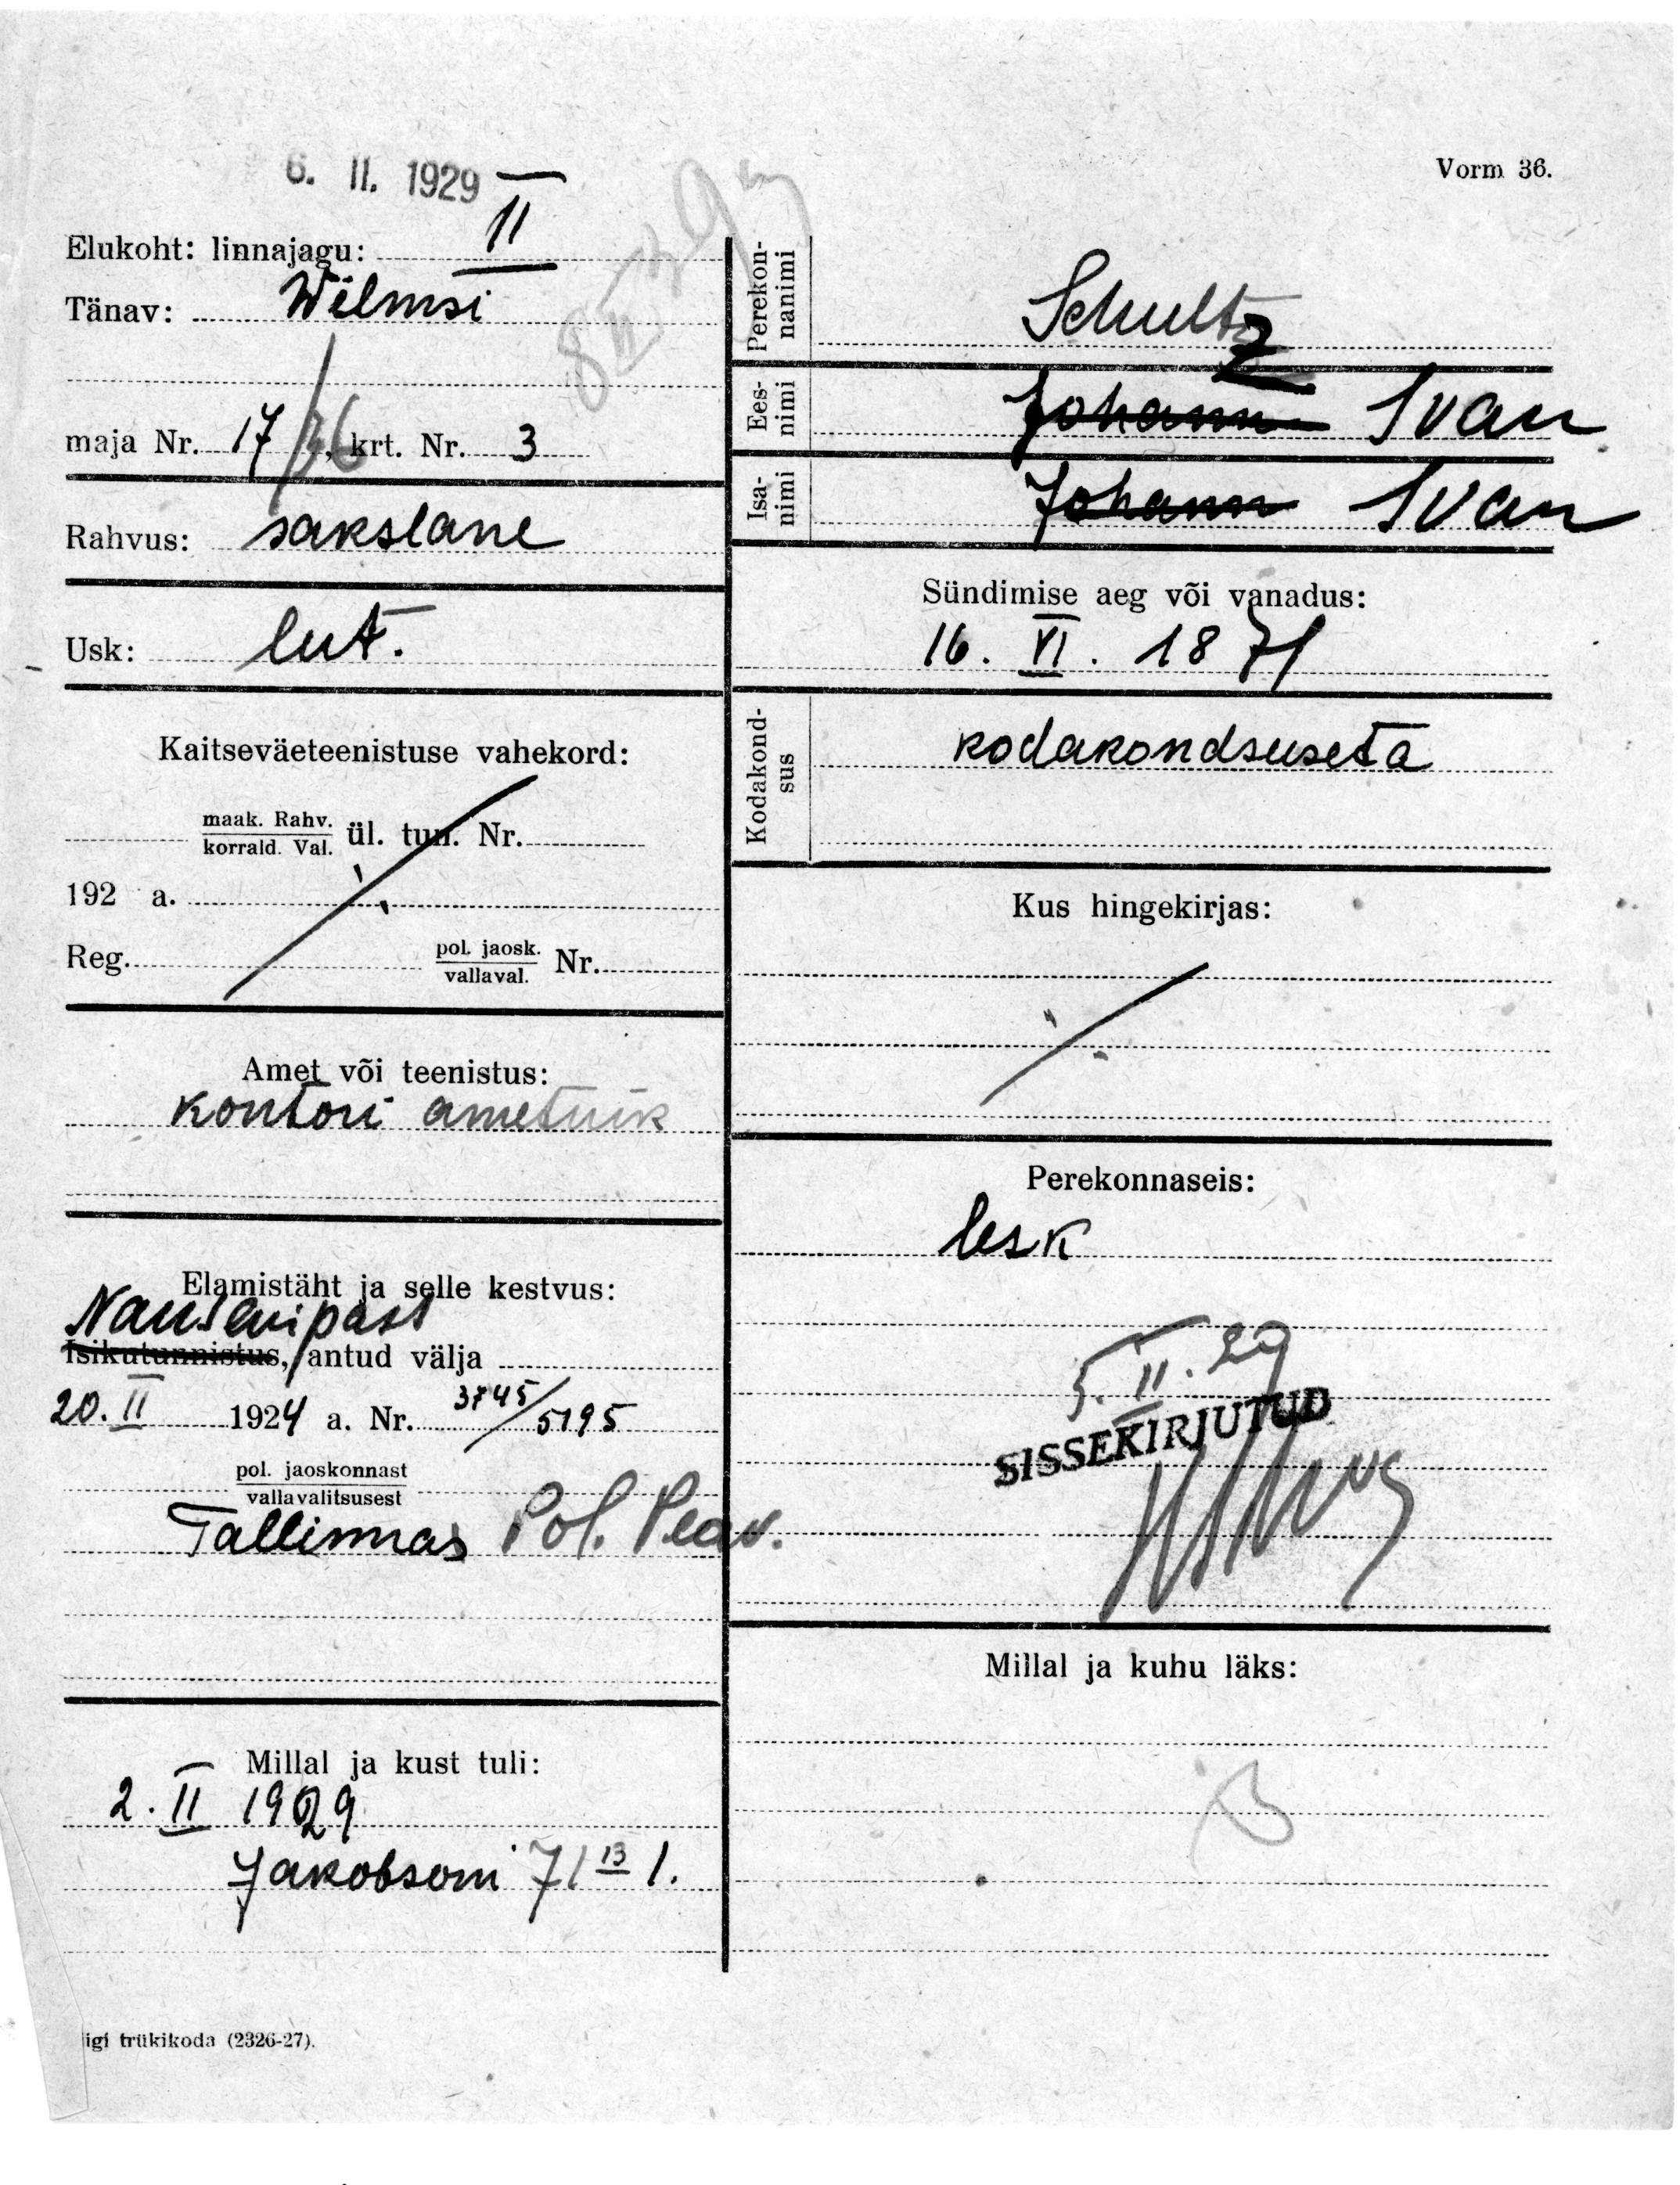 6. II. 1929
Vorm 36.
Elukoht: linnajagu: II
Tänav: Wilmsi
maja Nr. 17/36, krt. Nr. 3
Rahvus: sakslane
Usk: lut.
Kaitseväeteenistuse vahekord:
maak. Rahv.
korrald. Val. ül. tun. Nr.
192 a.
Reg. pol. jaosk.
vallaval. Nr.
Amet või teenistus:
kontori ametnik
Elamistäht ja selle kestvus:
Nansenipass
Isikutunnistus, antud välja
20. II 1924 a. Nr. 3745/5195
pol. jaoskonnast
vallavalitsusest
Tallinnas Pol. Peav.
Millal ja kust tuli:
2. II 1929
Jakobsoni 71 13 1.
igi trükikoda (2326-27).
Perekon-
nanimi
Schultz
Ees-
nimi
Johann Ivan
Isa-
nimi
Johann Ivan
Sündimise aeg või vanadus:
16. VI. 1871
Kodakond-
sus
kodakondsuseta
Kus hingekirjas:
Perekonnaseis:
lesk
5. II. 29
SISSEKIRJUTUD
Millal ja kuhu läks: